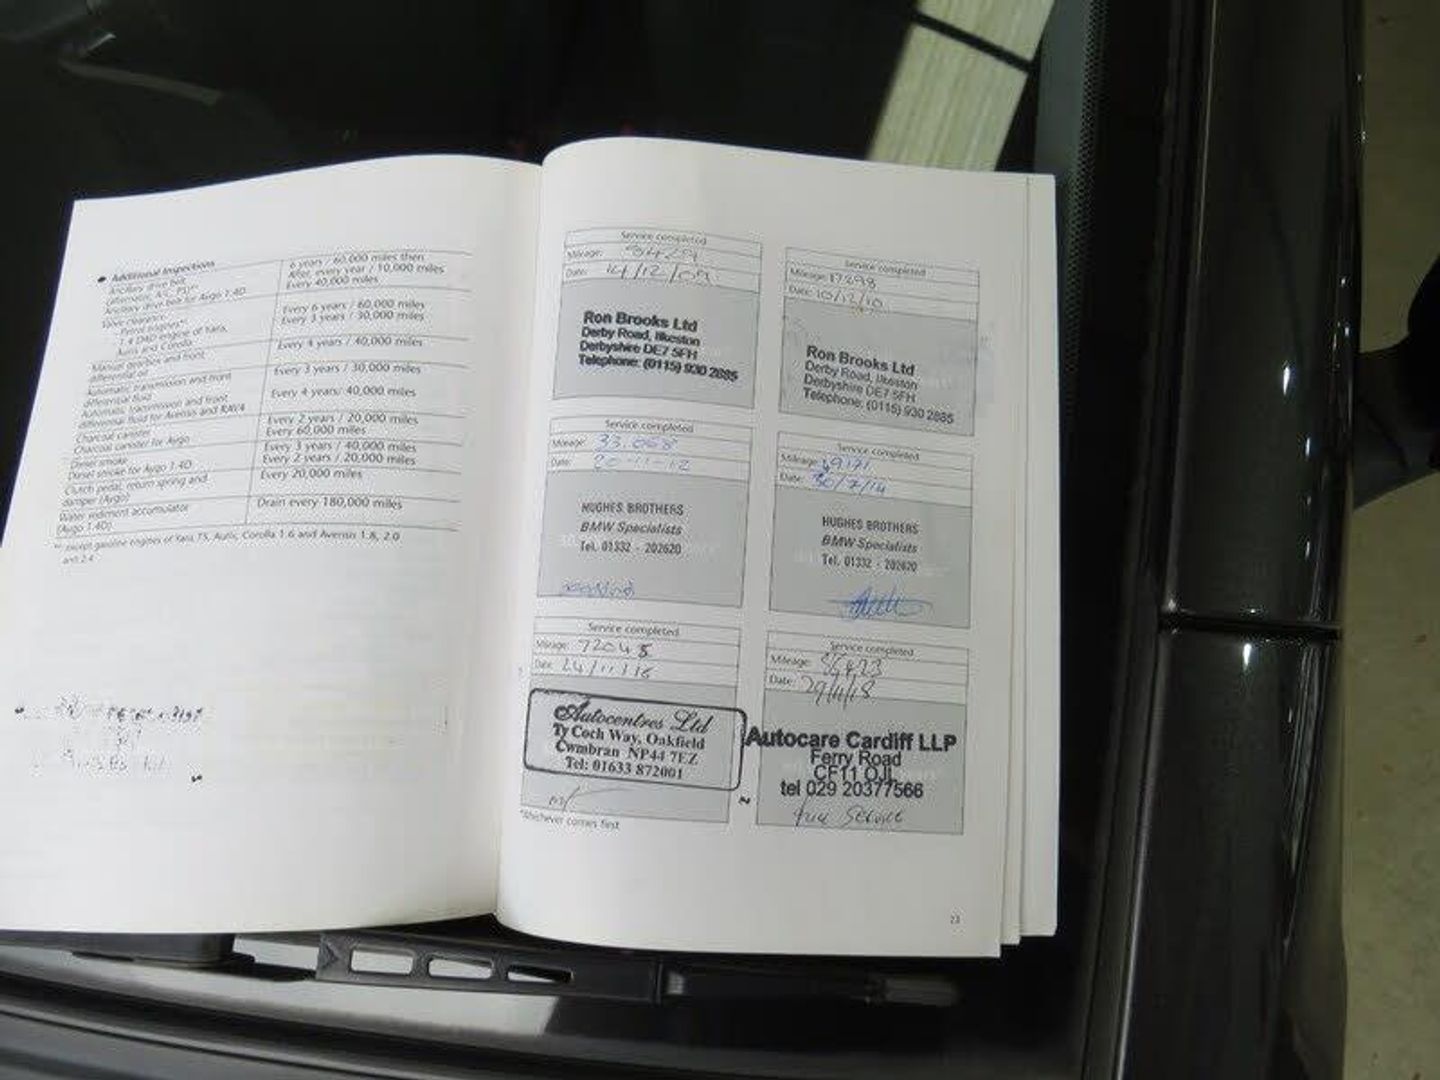 Additional Inspections
Ancillary drive belt
(alternator, A/C, PS)*
Ancillary drive belt for Aygo 1.4D
Valve clearance
Petrol engines**
1.4 D4D engine of Yaris,
Auris and Corolla
Manual gearbox and front
differential oil
Automatic transmission and front
differential fluid
Automatic transmission and front
differential fluid for Avensis and RAV4
Charcoal canister
Charcoal canister for Aygo
Diesel smoke
Diesel smoke for Aygo 1.4D
Clutch pedal, return spring and
damper (Aygo)
Water sediment accumulator
(Aygo 1.4D)
6 years / 60,000 miles then
After, every year / 10,000 miles
Every 40,000 miles
Every 6 years / 60,000 miles
Every 3 years / 30,000 miles
Every 4 years / 40,000 miles
Every 3 years / 30,000 miles
Every 4 years / 40,000 miles
Every 2 years / 20,000 miles
Every 60,000 miles
Every 3 years / 40,000 miles
Every 2 years / 20,000 miles
Every 20,000 miles
Drain every 180,000 miles
** except gasoline engines of Yaris TS, Auris, Corolla 1.6 and Avensis 1.8, 2.0
and 2.4
Service completed
Mileage: 9429
Date: 14/12/09
Ron Brooks Ltd
Derby Road, Ilkeston
Derbyshire DE7 5FH
Telephone: (0115) 930 2885
Service completed
Mileage: 17298
Date: 10/12/10
Ron Brooks Ltd
Derby Road, Ilkeston
Derbyshire DE7 5FH
Telephone: (0115) 930 2885
Service completed
Mileage: 33.068
Date: 20-11-12
HUGHES BROTHERS
BMW Specialists
Tel. 01332 - 202620
Service completed
Mileage: 49171
Date: 30/7/14
HUGHES BROTHERS
BMW Specialists
Tel. 01332 - 202620
Service completed
Mileage: 72045
Date: 24/11/16
Autocentres Ltd
Ty Coch Way, Oakfield
Cwmbran NP44 7EZ
Tel: 01633 872001
Service completed
Mileage:
Date: 29/4/18
Autocare Cardiff LLP
Ferry Road
CF11 OJL
tel 029 20377566
full service
*Whichever comes first
23